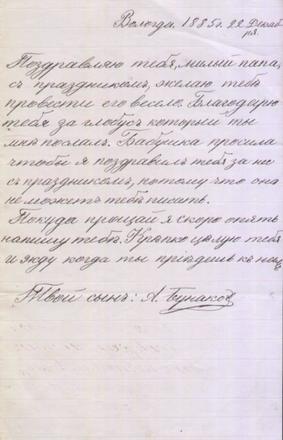 Вологда. 1885 г. 22 Декаб
ря.
Поздравляю тебя, милый папа,
съ праздникомъ, желаю тебѣ
провести его весело. Благодарю
тебя за глобусъ который ты
мнѣ послалъ. Бабушка просила
чтобы я поздравилъ тебя за нее
съ праздникомъ, потому что она
не можетъ тебѣ писать.
Покуда прощай я скоро опять
напишу тебѣ. Крѣпко цѣлую тебя
и жду когда ты пріѣдешь къ намъ
Твой сынъ: А. Бунаковъ